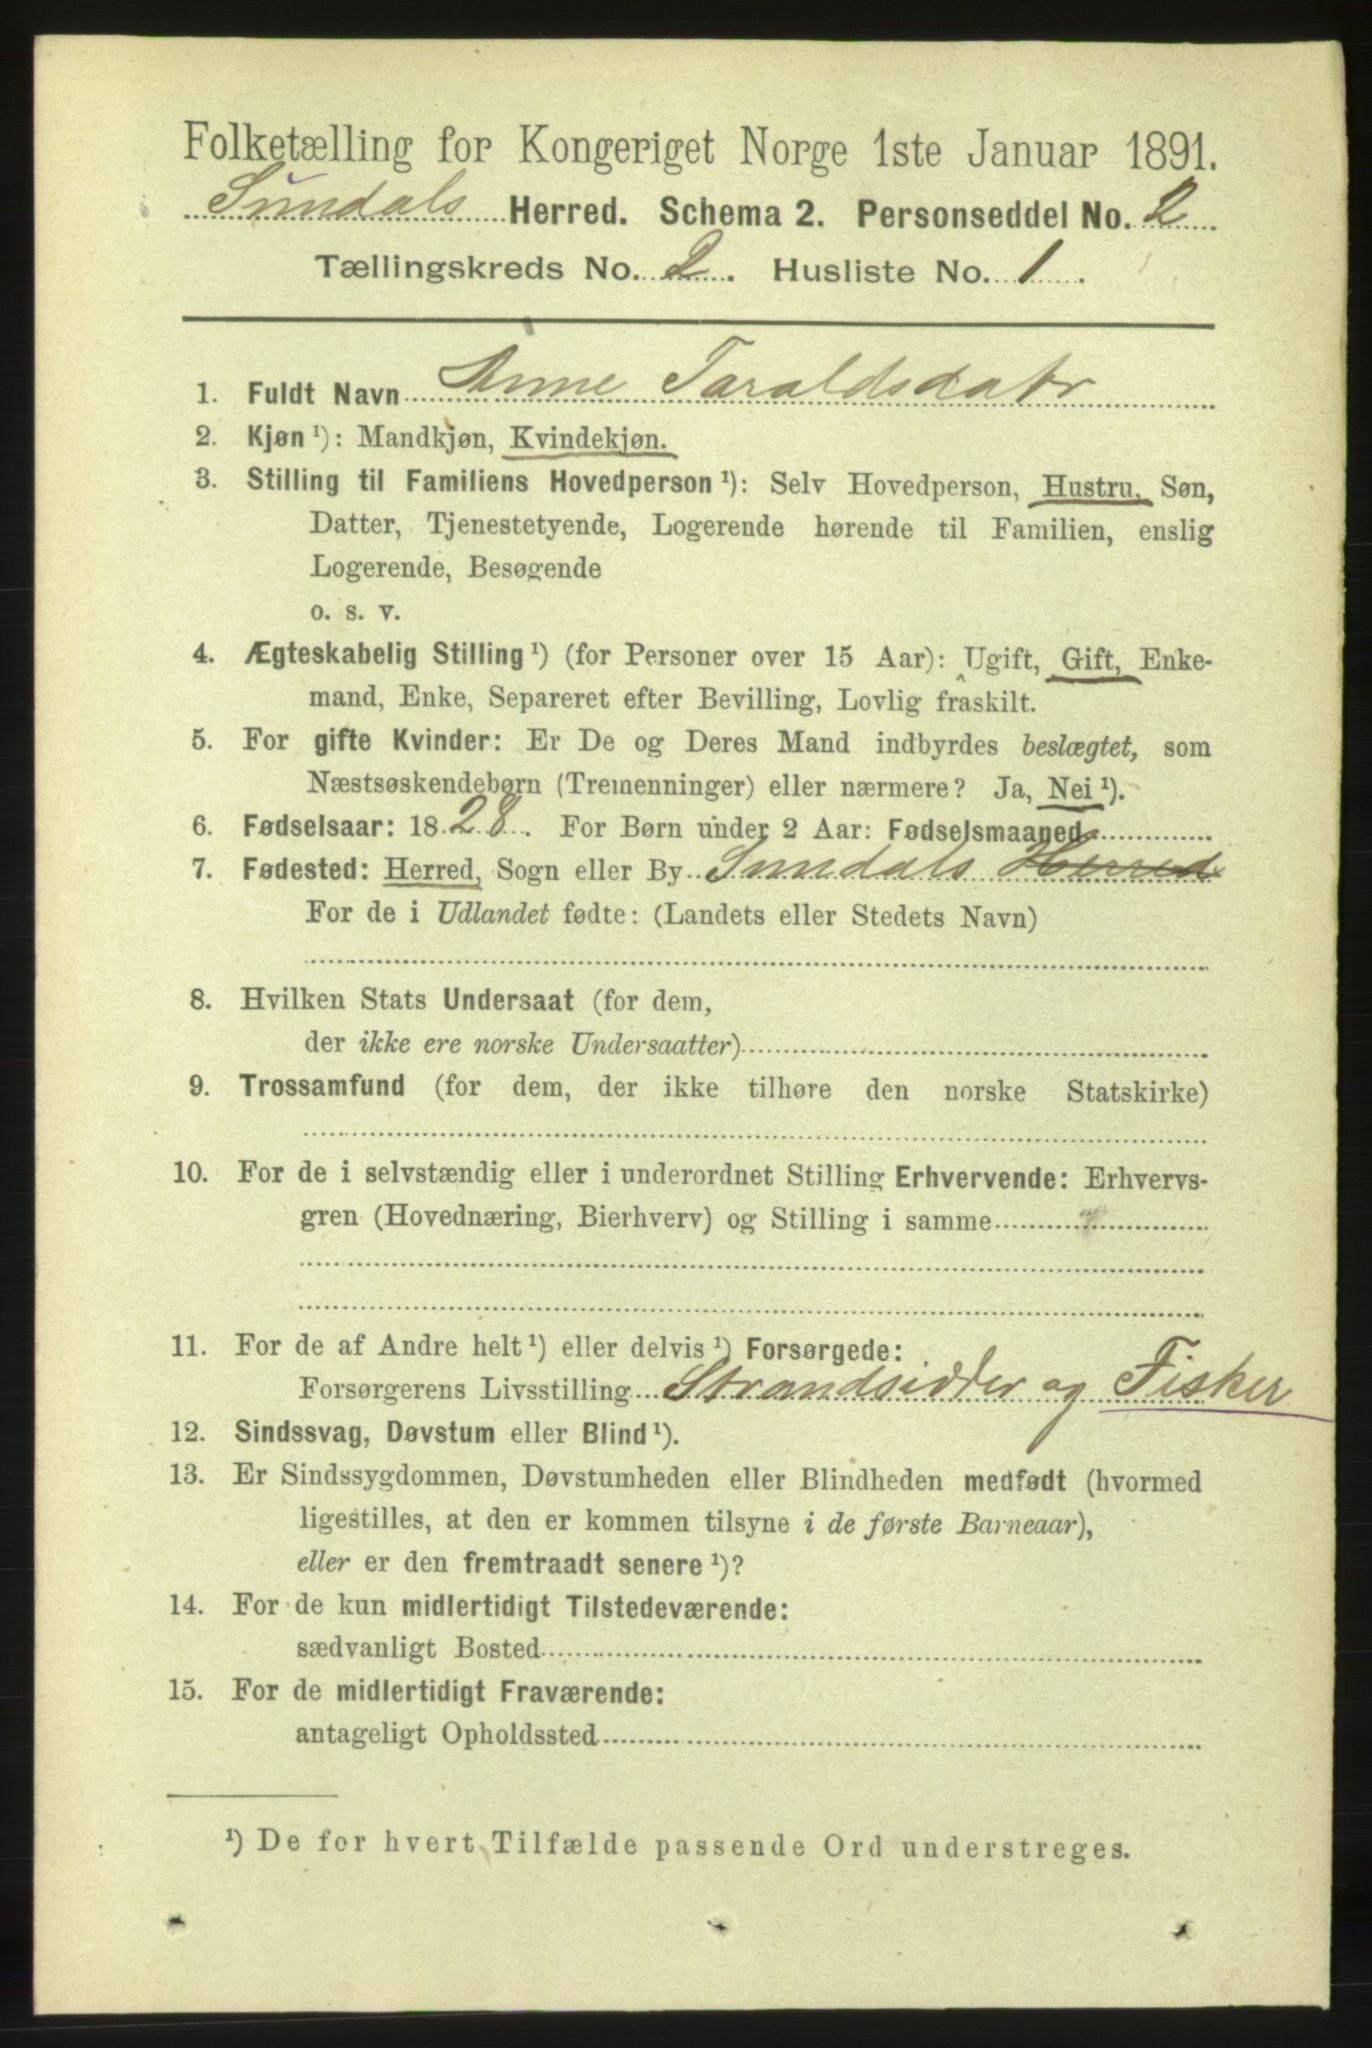 Folketælling for Kongeriget Norge 1ste Januar 1891.
Sundals Herred. Schema 2. Personseddel No. 2
Tællingskreds No. 2. Husliste No. 1.
1. Fuldt Navn Anne Taraldsdatr
2. Kjøn ¹): Mandkjøn, Kvindekjøn.
3. Stilling til Familiens Hovedperson ¹): Selv Hovedperson, Hustru, Søn,
Datter, Tjenestetyende, Logerende hørende til Familien, enslig
Logerende, Besøgende
o. s. v.
4. Ægteskabelig Stilling ¹) (for Personer over 15 Aar): Ugift, Gift, Enke-
mand, Enke, Separeret efter Bevilling, Lovlig fraskilt.
5. For gifte Kvinder: Er De og Deres Mand indbyrdes beslægtet, som
Næstsøskendebørn (Tremenninger) eller nærmere? Ja, Nei ¹).
6. Fødselsaar: 1828. For Børn under 2 Aar: Fødselsmaaned
7. Fødested: Herred, Sogn eller By Sundals Herred
For de i Udlandet fødte: (Landets eller Stedets Navn)
8. Hvilken Stats Undersaat (for dem,
der ikke ere norske Undersaatter)
9. Trossamfund (for dem, der ikke tilhøre den norske Statskirke)
10. For de i selvstændig eller i underordnet Stilling Erhvervende: Erhvervs-
gren (Hovednæring, Bierhverv) og Stilling i samme
11. For de af Andre helt ¹) eller delvis ¹) Forsørgede:
Forsørgerens Livsstilling Strandsidder og Fisker
12. Sindssvag, Døvstum eller Blind ¹).
13. Er Sindssygdommen, Døvstumheden eller Blindheden medfødt (hvormed
ligestilles, at den er kommen tilsyne i de første Barneaar),
eller er den fremtraadt senere ¹)?
14. For de kun midlertidigt Tilstedeværende:
sædvanligt Bosted
15. For de midlertidigt Fraværende:
antageligt Opholdssted
¹) De for hvert Tilfælde passende Ord understreges.